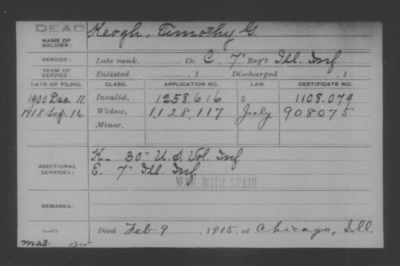 DEAD
NAME OF SOLDIER: Keogh, Timothy G.
SERVICE: Late rank, Co. C, 7" Reg't Ill. Inf
TERM OF SERVICE: Enlisted , 1 Discharged , 1
DATE OF FILING. CLASS. APPLICATION NO. LAW. CERTIFICATE NO.
1900 Dec. 11. Invalid, 1258616 1108.079
1918 Sep. 16. Widow, 1,128,117 July 908075
Minor,
ADDITIONAL SERVICES: K- 30" U.S. Vol. Inf
E. 7" Ill. Inf
WAR WITH SPAIN
REMARKS:
Died Feb 9, 1915, at Chicago, Ill.